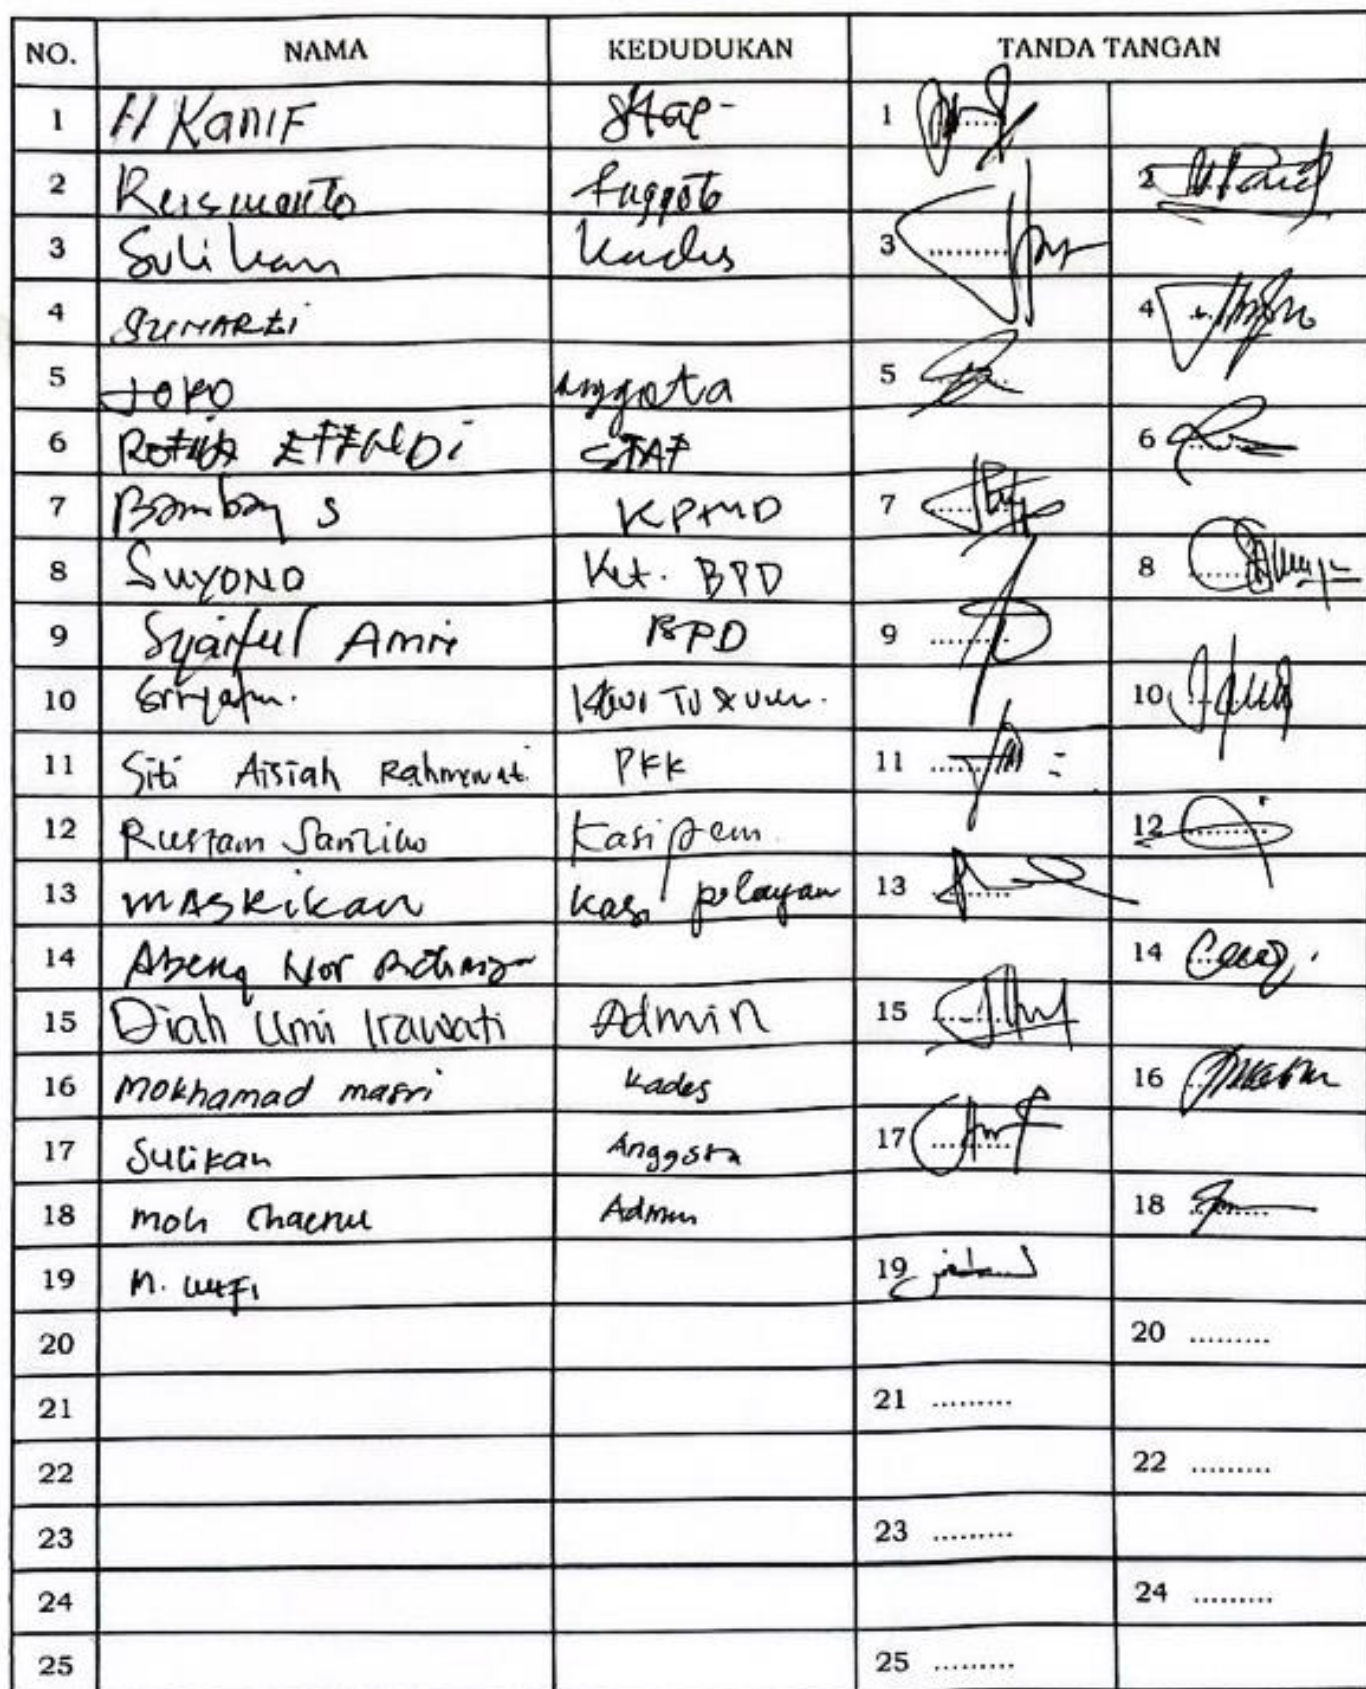 NO. NAMA KEDUDUKAN TANDA TANGAN
1 H Kanif Staf 1
2 Ruswanto Anggota 2
3 Sulikan Kades 3
4 SUNARTI 4
5 JOKO anggota 5
6 EFFENDI STAF 6
7 Bambang S KPMD 7
8 SUYONO Ket. BPD 8
9 Syaiful Amri BPD 9
10 Kaur TU & Umum. 10
11 Siti Aisiah Rahmawati 11 PKK
12 Rustam Kasi pem 12
13 MASKIKAN Kasi pelayan 13
14 Nor 14
15 Diah Umi Irawati Admin 15
16 Mokhamad masri Kades 16
17 Sulikan Anggota 17
18 moh Chaerul Admin 18
19 M. Lutfi 19
20 20 .........
21 21 .........
22 22 .........
23 23 .........
24 24 .........
25 25 .........